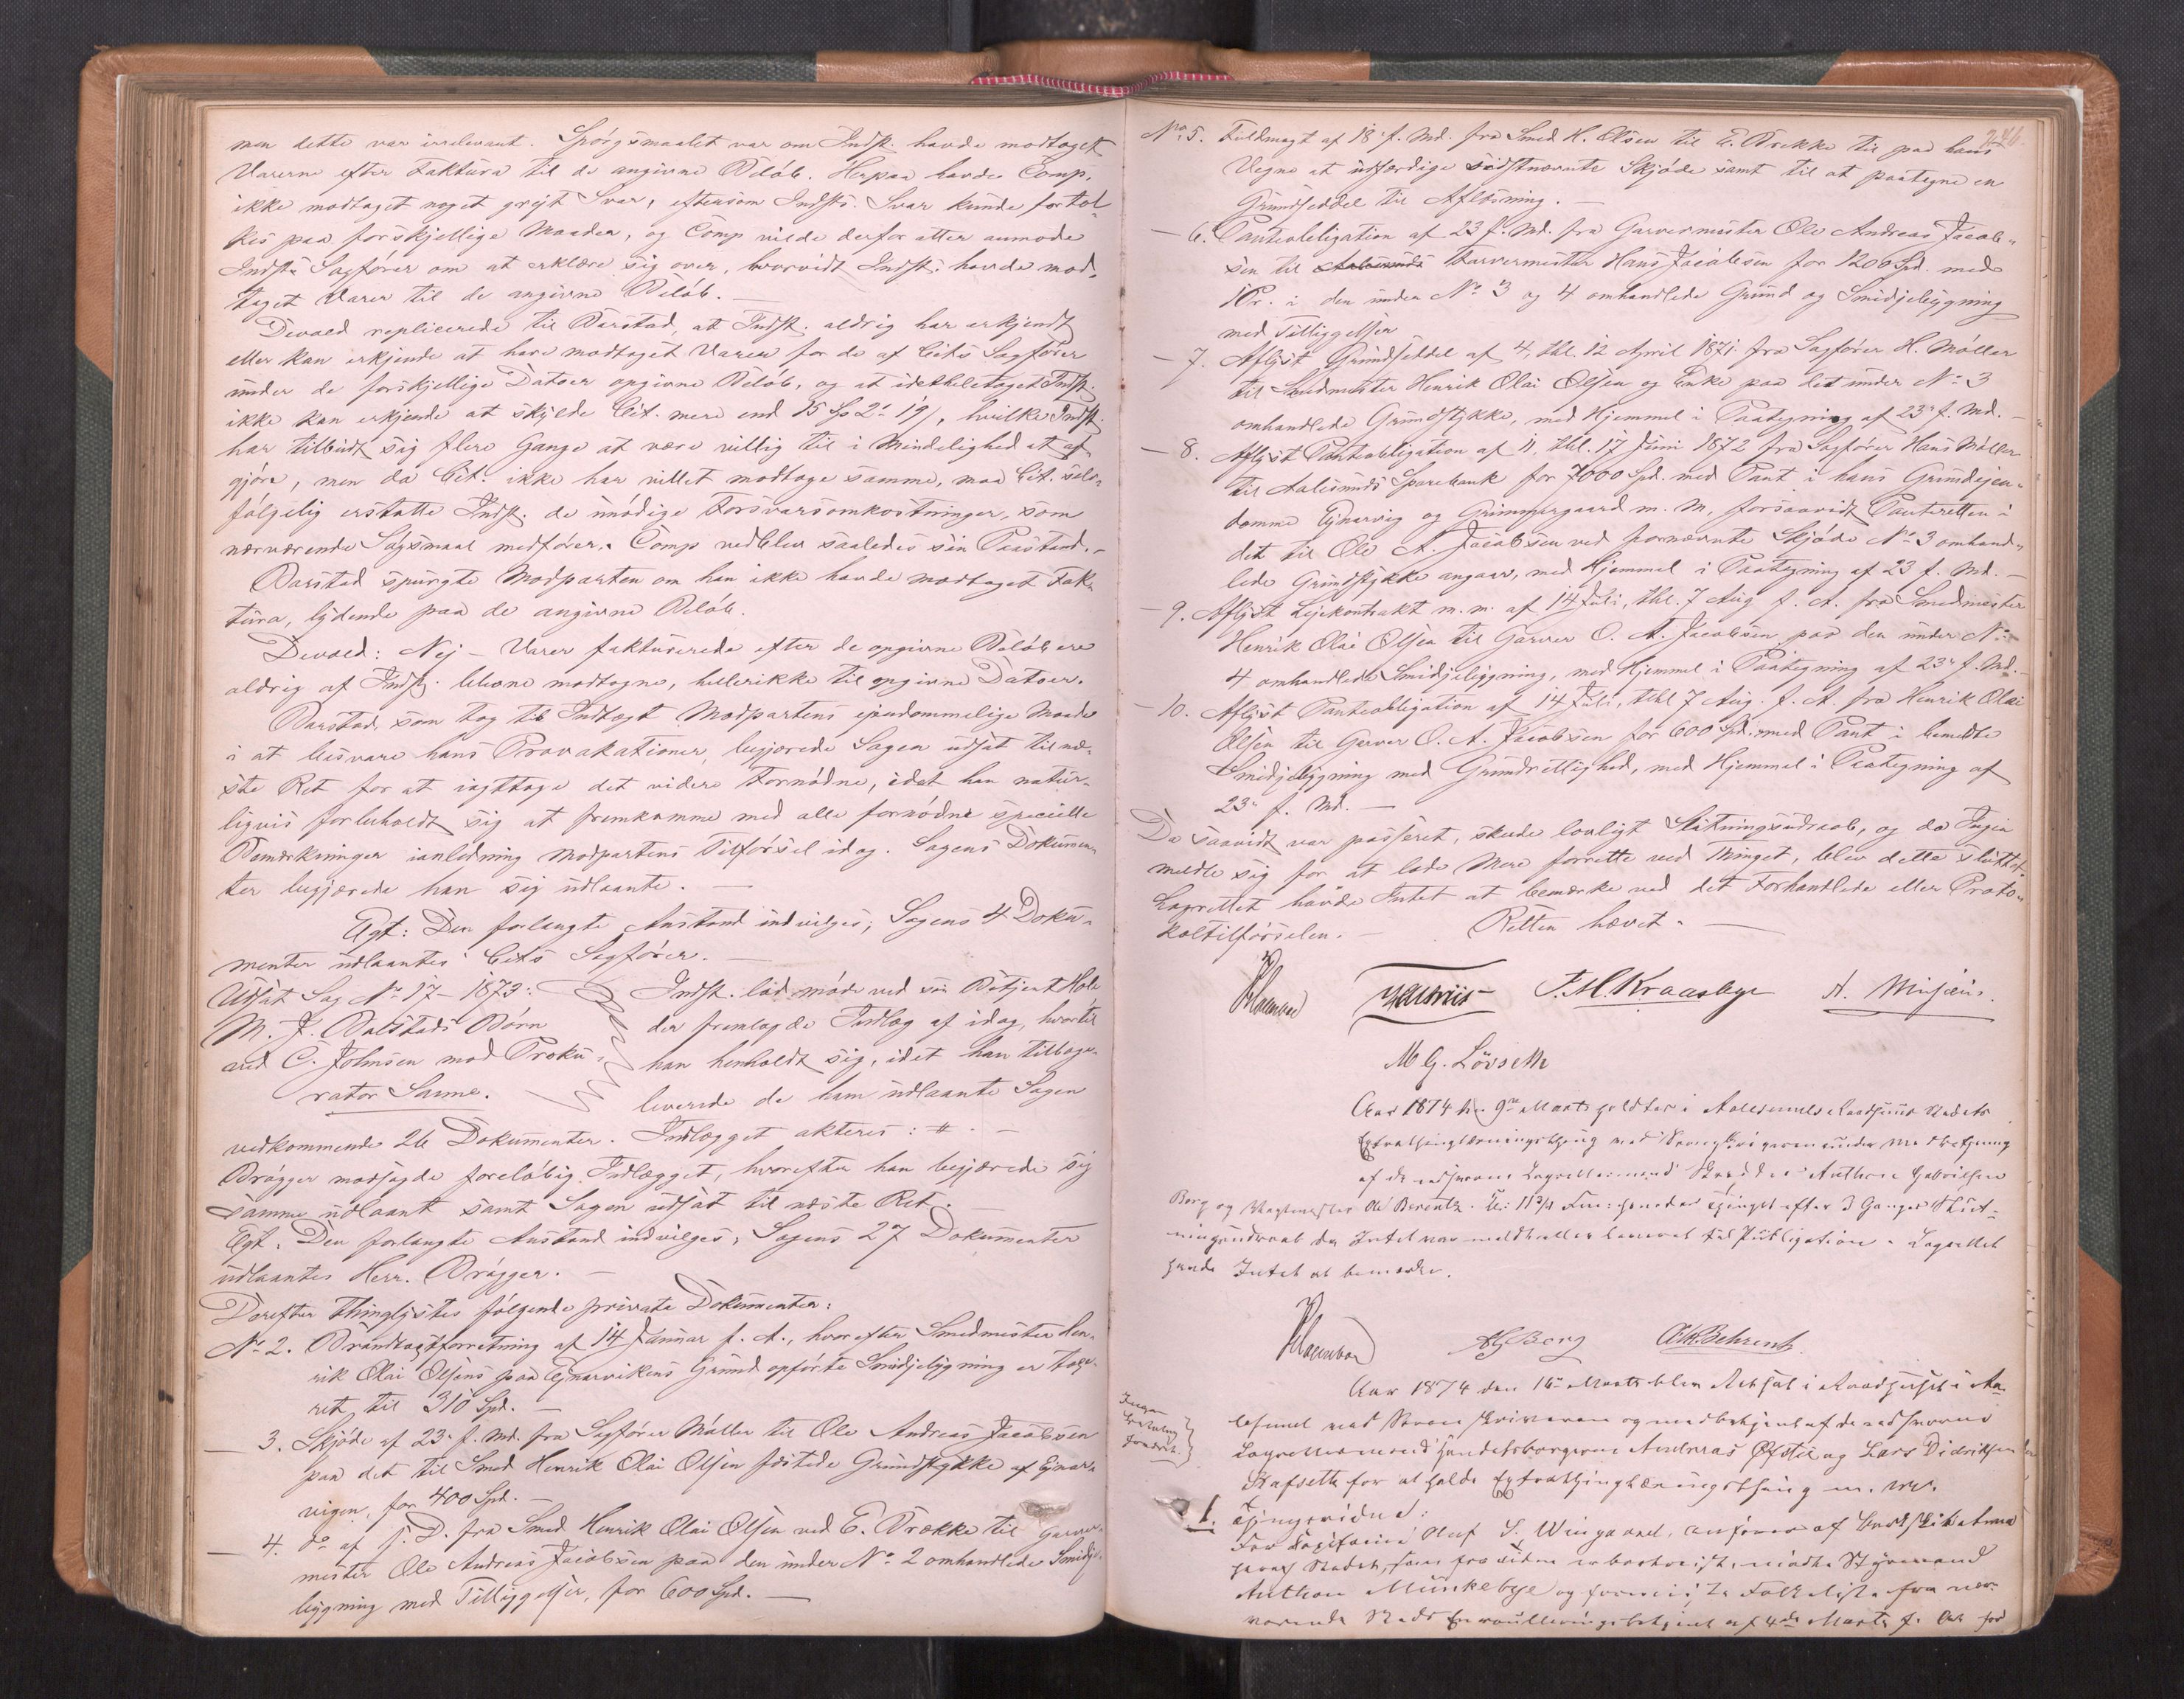 men dette var irrelevant. Spörgsmaalet var om Indst. havde modtaget
Varerne efter Faktura til de angivne Belöb. Herpaa havde Comp.
ikke modtaget noget greit Svar, eftersom Indsts. Svar kunde fortol-
kes paa forskjellige Maader, og Comp vilde derfor atter anmode
Indsts Sagförer om at erklære sig over, hvorvidt Indst. havde mod-
taget Varer til de angivne Belöb. —
Devold replicerede til Barstad, at Indst. aldrig har erkjendt
eller kan erkjende at have modtaget Varer for de af Cits Sagförer
under de forskjellige Datoer opgivne Belöb, og at idetheletaget Indst.
ikke kan erkjende at skylde Cit. mere end 15 Sp 2 19, hvilke Indst.
har tilbudt sig flere Gange at være villig til i Mindelighed at af-
gjöre, men da Cit. ikke har villet modtage samme, maa Cit. selv-
fölgelig erstatte Indst. de unödige Forsvarsomkostninger, som
nærværende Sögsmaal medförer. Comp vedblev saaledes sin Paastand. –
Barstad spurgte Modparten om han ikke havde modtaget Fak-
tura, lydende paa de angivne Belöb.
Devold: Nej – Varer fakturerede efter de opgivne Belöb ere
aldrig af Indst. blevne modtagne, hellerikke til opgivne Datoer.
Barstad, som tog til Indtægt Modpartens eiendommelige Maade
i at besvare hans Provokationer, begjærede Sagen udsat til næ-
ste Ret for at iagttage det videre Fornödne, idet han natur-
ligvis forbeholdt sig at fremkomme med alle fornödne specielle
Bemærkninger ianledning Modpartens Tilförsel idag. Sagens Dokumen-
ter begjærede han sig udlaante. —
Egt: Den forlangte Anstand indvilges; Sagens 4 Doku-
menter udlaantes Cits Sagförer. —
Udsat Sag No 17 – 1873:
M. J. Dalstads Börn
ved C. Johnsen mod Proku-
rator Sanne.
Indst. lod möde ved sin Betjent Hole
der fremlagde Indlæg af idag, hvortil
han henholdt sig, idet han tilbage-
leverede de ham udlaante Sagen
vedkommende 26 Dokumenter. Indlægget akteres: #. –
Brögger modsagde forelöbig Indlægget, hvorefter han begjærede sig
samme udlaant samt Sagen udsat til næste Ret. –
Egt. Den forlangte Anstand indvilges, Sagens 27 Dokumenter
udlaantes Herr. Brögger. –
Derefter thinglystes fölgende private Dokumenter:
No 2. Brandtagstforretning af 14 Januar f. A., hvorefter Smedmester Hen-
rik Olai Olsens paa Ejnarvikens Grund opförte Smidjebygning er taxe-
ret til 310 Spd. –
— 3. Skjöde af 23. f. Md. fra Sagförer Möller til Ole Andreas Jacobsen
paa det til Smed Henrik Olai Olsen fæstede Grundstykke af Ejnar-
vigen, for 400 Spd. –
— 4. do af s. D. fra Smed Henrik Olai Olsen ved E. Brekke til Garver-
mester Ole Andreas Jacobsen paa den under No 2 omhandlede Smidje-
bygning med Tilliggelser, for 600 Spd. —
246.
No 5. Fuldmagt af 18. f. Md. fra Smed H. Olsen til E. Brekke til paa hans
Vegne at udfærdige sidstnævnte Skjöde samt til at paategne en
Grundseddel til Aflösning. –
— 6. Panteobligation af 23 f. Md. fra Garvermester Ole Andreas Jacob-
sen til Farvermester Hans Jacobsen for 1200 Spd. med
1 Pr. i den under No 3 og 4 omhandlede Grund og Smidjebygning
med Tilliggelser
— 7. Aflyst Grundseddel af 4, thl. 12 April 1871. fra Sagförer H. Möller
til Smedmester Henrik Olai Olsen og Enke paa det under No 3
omhandlede Grundstykke, med Hjemmel i Paategning af 23. f. Md. –
— 8. Aflyst Panteobligation af 11, thl. 17 Juni 1872 fra Sagförer Hans Möller
til Aalesunds Sparebank for 7000 Spd. med Pant i hans Grundejen-
domme Ejnarvig og Grimmergaard m. M, forsaavidt Panteretten i
det til Ole A. Jacobsen ved fornævnte Skjöde No 3 omhand-
lede Grundstykke angaar, med Hjemmel i Paategning af 23 f. Md. –
— 9. Aflyst Lejekontrakt m. m. af 14 Juli, thl. 7 Aug f. A. fra Smedmester
Henrik Olai Olsen til Garver O. A. Jacobsen paa den under No
4 omhandlede Smidjebygning, med Hjemmel i Paategning af 23. f. Md.
— 10. Aflyst Panteobligation af 14 Juli, thl 7 Aug. f. A. fra Henrik Olai
Olsen til Garver O. A. Jacobsen for 600 Spd. med Pant i bemeldte
Smidjebygning med Grundrettighed, med Hjemmel i Paategning af
23. f. Md. —
Da saavidt var passeret, skede lovligt Slutningsudraab, og da Ingen
meldte sig for at lade Mere forrette ved Thinget, blev dette sluttet.
Lagrettet havde Intet at bemærke ved det Forhandlede eller Proto-
koltilförselen. – Retten hævet. —
J. M. Kraasbye
M G. Lövseth
Aar 1874 den 9de Marts holdtes i Aalesunds Raadhuus Stedets
Extrathinglæsningsthing ved Sorenskriveren under Medbetjening
af de edsvorne Lagrettesmænd Anthon Gabrielsen
Berg og Vagtmester Ole Berentz. Kl: 11 3/4 Thinget efter 3 Ganges Slut-
ningsudraab da Intet var meldt eller leveret til Publigation. Lagrettet
havde Intet at bemærke.
AGBerg Ole. Behrents.
Aar 1874 den 16de Marts blev Ret sat i Raadhuset i Aa-
lesund ved Sorenskriveren og medbetjent af de edsvorne
Lagrettesmænd Handelsborgerne Andreas Ofstie og Lars Didriksen
Rafseth for at holde Extrathinglæsningsthing m. m.
1. Thingsvidne:
For Kapitaine Oluf S. Wingaard, Anförer af
Stedet, mödte Styrmand
Anthon Munkebye og Folkeliste fra nær-
værende Steds Enroulleringsbetjent af 4de Marts f. A.